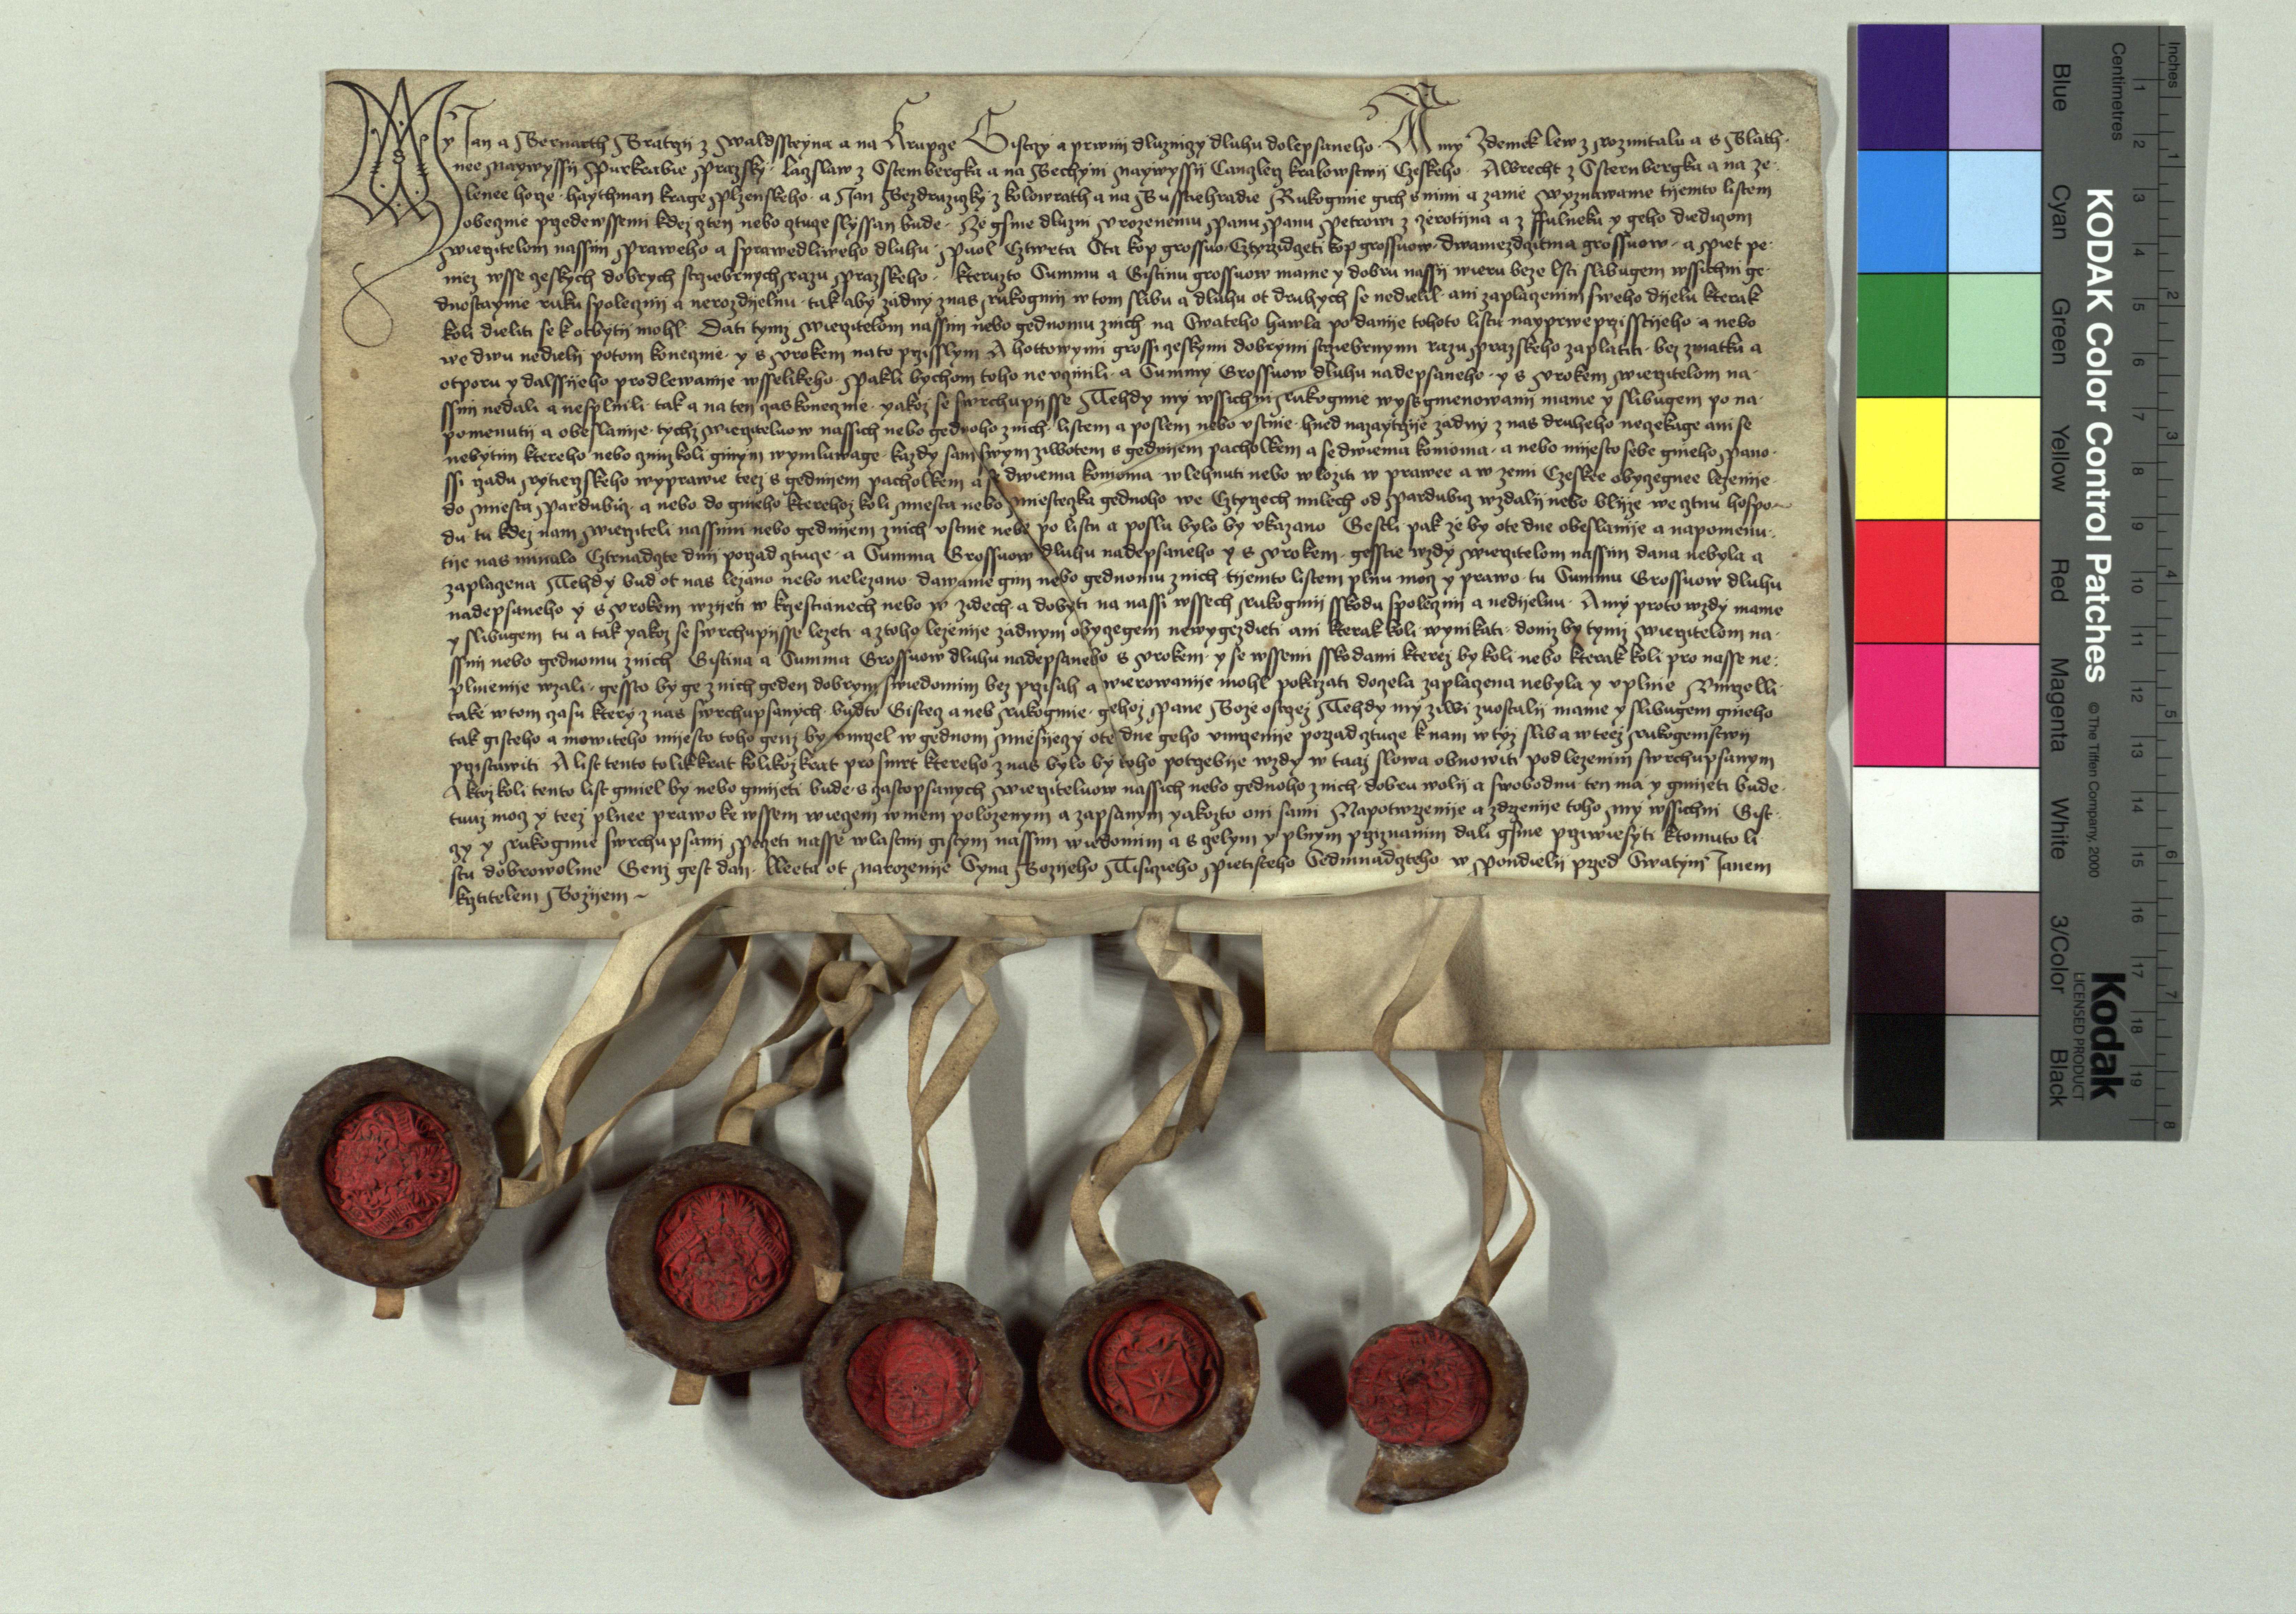 My Jan a Bernarth Bratrzij z Waldssteyna a na Krapcze Gistczy a prwnij dluzniczy dluhu dolepsaneho · A my Zdeniek lew z rozmitalu a s Blath ·
nee naywyssij Purkrabie Prazsky · laczslaw z Sstermbergka a na Bechyni naywyssij Canczlerz kralowstwij Czeskeho · Albrecht z Ssternbergka a na ze ·
lenee horze · haythman krage Plzenskeho · a Jan Bezdruziczky z kolowrath a na Busstiehradie Rukogmie gich s nimi a zanie wyznawame tijemto listem
obecznie przedewssemi kdez cten nebo cztuge slyssan bude · Ze gsme dluzni vrozenemu Panu Panu Petrowi z zerotijna a z ffulneku y geho diediczom
wierzitelom nassim Praweho a sprawedliweho dluhu · Puol Cztwrta Sta kop grossuo · Cztyrzidczeti kop grossuow · dwamezdczitma grossuow · a piet pe ·
niez wsse czeskych dobrych strziebrnych razu Prazskeho · kteruzto Summu a Gistinu grossuow mame y dobru nassij wieru beze lsti slibugem wssichni ge ·
dnostaynie ruku spoleczni a nerozdijelnu · tak aby zadny znas rukogmij w tom slibu a dluhu ot druhych se nedielil · ani zaplaczenim sweho dijelu kterak
koli dieliti se k otbytij mohl · Dati tymz wierzitelom nassim nebo gednomu znich na Swateho hawla po danije tohoto listu nayprwe przisstijeho · a nebo
we dwu nedielij potom konecznie · y s vrokem na to przisslym A hottowymi grossi czeskymi dobrymi strziebrnymi razu Prazskeho zaplatiti · bez zmatku a
otporu y dalssijeho prodlewanije wsselikeho · Pakli bychom toho nevczinili · a Summy Grossuow dluhu nadepsaneho · y s vrokem wierzitelom na ·
ssim nedali a nesplnili · tak a na ten czas konecznie · yakoz se swrchupijsse Tehdy my wssichni rukogmie wyssgmenowanij mame y slibugem po na ·
pomenutij a obeslanije · tychz wierziteluow nassich nebo gednoho znich · listem a poslem nebo vstnie · hned nazaytrzije zadny z nas druheho neczekage ani se
nebytim ktereho nebo cznim koli ginym wymluwage · kazdy sam swym ziwotem s gednijem pacholkem a se dwiema konioma · a nebo mijesto sebe gineho Pano ·
ssi rzadu rytierzskeho wyprawie teez s gednijem pacholkem a se dwiema konioma · wlehnuti nebo wloziti w prawee a w zemi Czeskee obyczegnee lezenije ·
do miesta Pardubicz · a nebo do gineho kterehoz koli miesta nebo miesteczka gednoho we Cztyrzech milech od Pardubicz wzdalij nebo blijze we cztnu hospo ~
du tu kdez nam wierziteli nassimi nebo gednijem znich vstnie nebo po listu a poslu bylo by vkazano Gestli pak ze by ote dne obeslanije a napomenu ·
tije nas minulo Cztrnadczte dnij porzad cztucze · a Summa Grossuow dluhu nadepsaneho y s vrokem · gesstie wzdy wierzitelom nassim dana nebyla a
zaplaczena Tehdy bud ot nas lezano nebo nelezano · dawame gim nebo gednomu znich · tijemto listem plnu mocz y prawo · tu Summu Grossuow dluhu
nadepsaneho y s vrokem wzijeti w krzestianech nebo w zidech · a dobyti na nassi wssech rukogmij sskodu spoleczni a nedijelnu · A my proto wzdy mame
y slibugem tu a tak yakoz se swrchupijsse lezeti · a z toho lezenije zadnym obyczegem newygezdieti ani kterak koli wynikati · doniz by tymz wierzitelom na ·
ssim nebo gednomu znich Gistina a Summa Grossuow dluhu nadepsaneho s vrokem · y se wssemi sskodami kterez by koli nebo kterak koli pro nasse ne ·
plnienije wzali · gessto by ge znich geden dobrym swiedomim bez przisah a wierowanije mohl pokazati doczela zaplaczena nebyla y vplnie Vmrzelli
take w tom czasu ktery z nas swrchupsanych · budto Gistecz aneb rukogmie · gehoz Pane Boze ostrzez Tehdy my ziwi zuostalij mame y slibugem gineho
tak gisteho a mowiteho mijesto toho genz by vmrzel w gednom miesijeczy ote dne geho vmrzenije porzad cztucze k nam w tyz slib a w teez rukogemstwij
przistawiti A list tento tolikkrat kolikozkrat pro smrt ktereho znas bylo by toho potrzebije wzdy w taaz slowa obnowiti pod lezenim swrchupsanym
A ktoz koli tento list gmiel by nebo gmijeti bude · s czastopsanych wierziteluow nassich nebo gednoho znich · dobru wolij a swobodnu · ten ma y gmijeti bude ·
tuuz mocz y teez plnee prawo ke wssem wieczem wniem polozenym a zapsanym yakozto oni sami Napotwrzenije a zdrzenije toho my wssichni Gist ·
czy y rukogmie swrchupsani Peczeti nasse wlastni gistym nassim wiedomim a s czelym y plnym przyznanim dali gsme prziwiesyti ktomuto li
stu dobrowolnie Genz gest dan · lleeta ot narozenije Syna Bozijeho Tisiczieho Pietisteho Sedmnadczteho w Pondielij przed Swatym Janem
krztitelem Bozijem ~
KODAK Color Control Patches
© The Tiffen Company, 2000
Kodak
LICENSED PRODUCT
Inches
Centimetres
1 2 3 4 5 6 7 8
1 2 3 4 5 6 7 8 9 10 11 12 13 14 15 16 17 18 19
Blue
Cyan
Green
Yellow
Red
Magenta
White
3/Color
Black